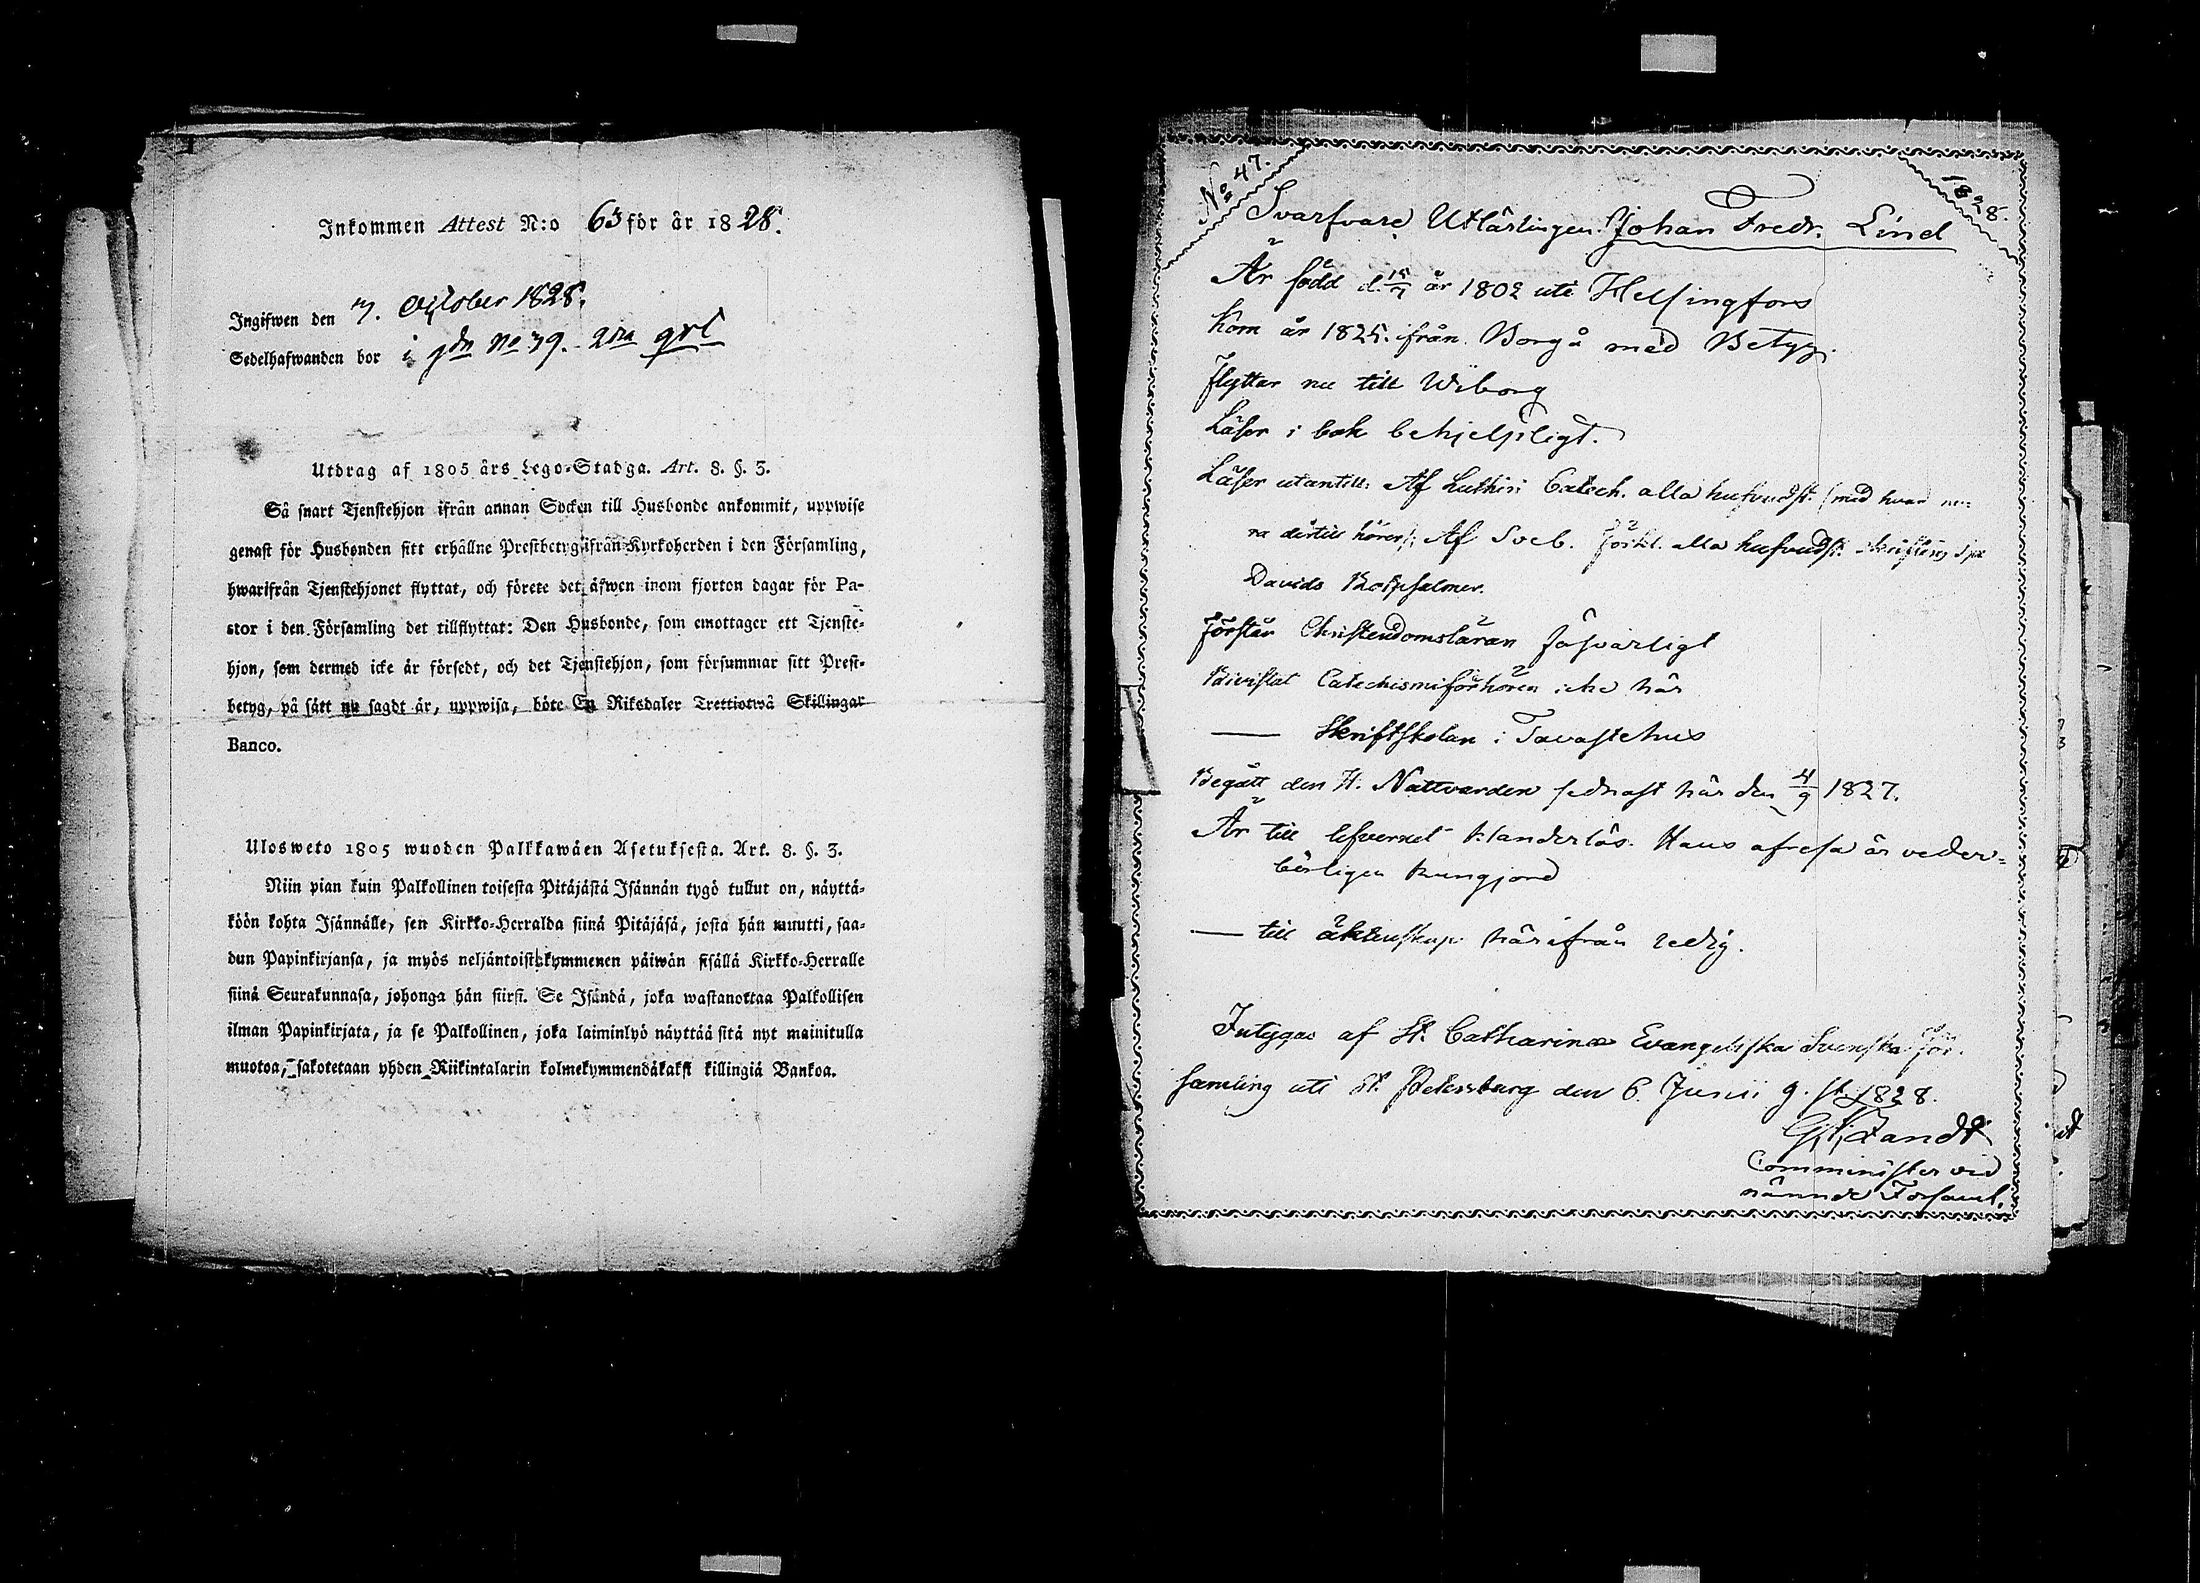 Inkommen Attest N:o 63 för år 1828.
Ingifwen den 7. October 1828.
Sedelhafwanden bor i gdn No 39. 2ra qrt
Utdrag af 1805 års Lego-Stadga. Art. 8. §. 3.
Så snart Tjenstehjon ifrån annan Socken till Husbonde ankommit, uppwise
genast för Husbonden sitt erhållne Prestbetyg ifrån Kyrkoherden i den Församling,
hwarifrån Tjenstehjonet flyttat, och förete det äfwen inom fjorton dagar för Pa-
stor i den Församling det tillflyttat: Den Husbonde, som emottager ett Tjenste-
hjon, som dermed icke är försedt, och det Tjenstehjon, som försummar sitt Prest-
betyg, på sätt nu sagdt är, uppwisa, böte En Riksdaler Trettiotwå Skillingar
Banco.
Ulosweto 1805 wuoden Palkkawäen Asetuksesta. Art. 8. §. 3.
Niin pian kuin Palkollinen toisesta Pitäjästä Isännän tygö tullut on, näyttä-
köön kohta Isännälle, sen Kirkko-Herralda siinä Pitäjäsä, josta hän muutti, saa-
dun Papinkirjansa, ja myös neljäntoistakymmenen päiwän sisällä Kirkko-Herralle
siinä Seurakunnasa, johonga hän siirsi. Se Isändä, joka wastanottaa Palkollisen
ilman Papinkirjata, ja se Palkollinen, joka laiminlyö näyttää sitä nyt mainitulla
muotoa, sakotetaan yhden Riikintalarin kolmekymmendäkaksi killingiä Bankoa.
No 47.
1828.
Svarfvare Utlärlingen Johan Fredr. Lind
Är född d. 15/7 år 1802 uti Helsingfors
Kom år 1825 ifrån Borgå med Betyg.
Flyttar nu till Wiborg
Läser i bok behjelpligt.
Läser utantill: Af Lutheri Catech. alla hufvudst. (med hvad me-
ra dertill hörer); Af Sveb. Förkl. alla hufvudst.
Davids Botpsalmer.
Förstår Christendomsläran försvarligt
Bivistat Catechismiförhören icke här
— Skriftskolan i Tavastehus
Begått den H. Nattvarden sednast här den 4/9 1827.
Är till lefvernet klanderlös. Hans afresa är veder-
börligen kungjord
— till äktenskap härifrån ledig.
Intygas af St. Catharinæ Evangeliska Svenska För-
samling uti St. Petersburg den 6. Junii g. st. 1828.
Comminister vid
nämnde Församl.